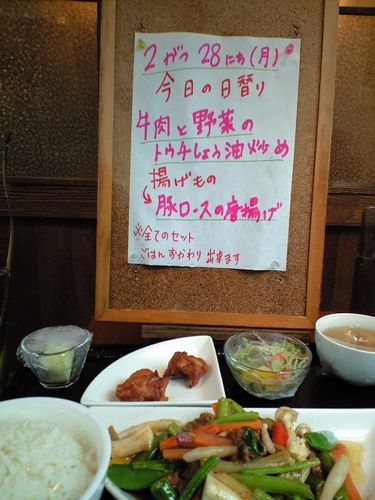 2がつ28にち(月)
今日の日替り
牛肉と野菜の
トウチしょう油炒め
揚げもの
豚ロースの唐揚げ
※全てのセット
ごはんおかわり出来ます